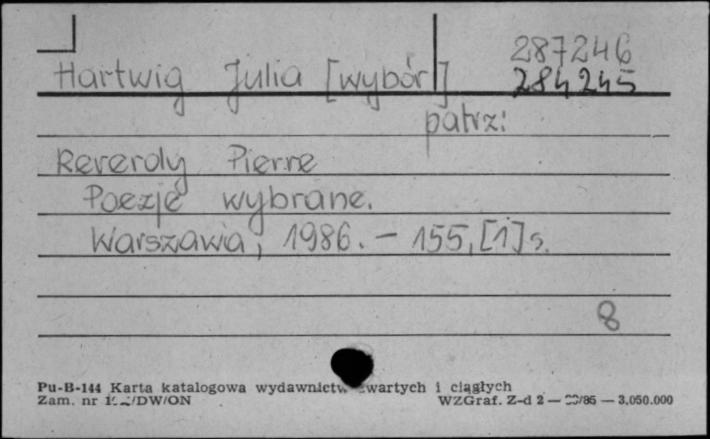 287246
Hartwig Julia [wybór] 284245
patrz:
Rererdy Pierre
Poezje wybrane.
Warszawa, 1986. — 155, [1] s.
8
Pu-B-144 Karta katalogowa wydawnictw zwartych i ciągłych
Zam. nr /DW/ON WZGraf. Z-d 2 — /86 — 3.050.000